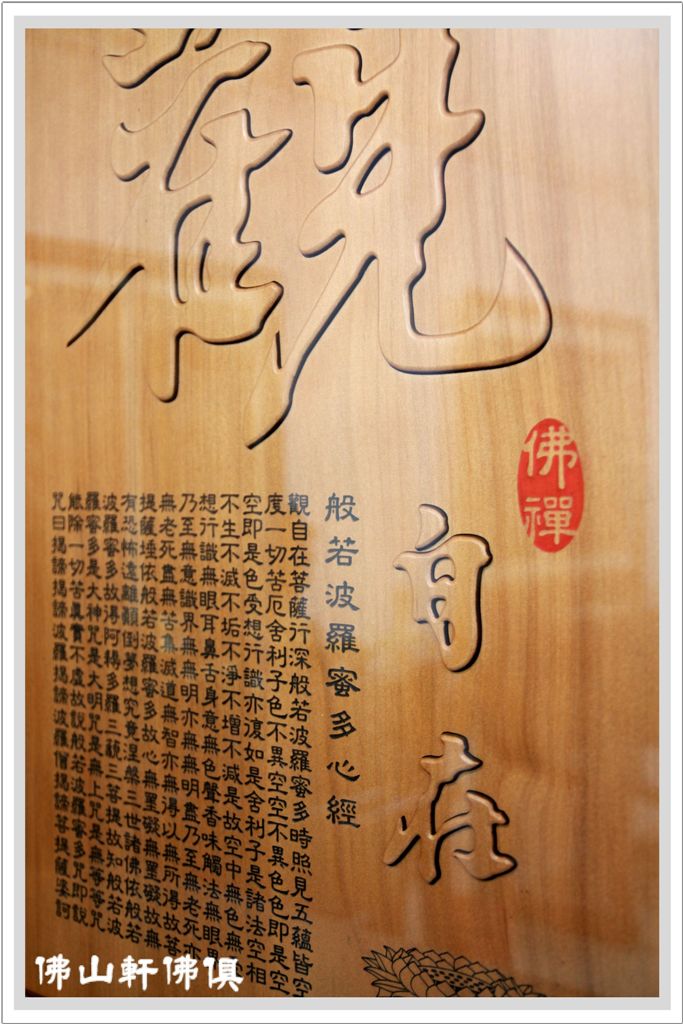 觀
自在
佛禪
般若波羅蜜多心經
觀自在菩薩行深般若波羅蜜多時照見五蘊皆空
度一切苦厄舍利子色不異空空不異色色即是空
空即是色受想行識亦復如是舍利子是諸法空相
不生不滅不垢不淨不增不減是故空中無色無
想行識無眼耳鼻舌身意無色聲香味觸法無眼界
乃至無意識界無無明亦無無明盡乃至無老死亦
無老死盡無苦集滅道無智亦無得以無所得故菩
提薩埵依般若波羅蜜多故心無罣礙無罣礙故無
有恐怖遠離顛倒夢想究竟涅槃三世諸佛依般若
波羅蜜多故得阿耨多羅三藐三菩提故知般若波
羅蜜多是大神咒是大明咒是無上咒是無等等咒
能除一切苦真實不虛故說般若波羅蜜多咒即說
咒曰揭諦揭諦波羅揭諦波羅僧揭諦菩提薩婆訶
佛山軒佛俱